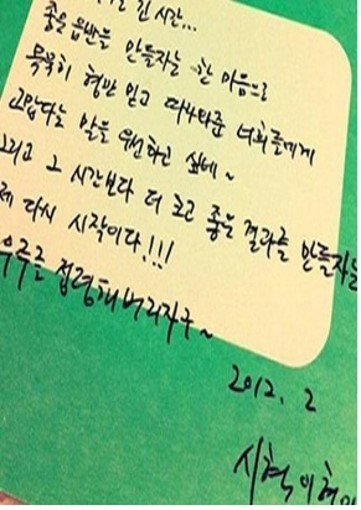 긴 시간...
좋은 음반을 만들자는 한 마음으로
묵묵히 형만 믿고 따라와준 너희들에게
고맙다는 말을 우선하고 싶네~
그리고 그 시간보다 더 크고 좋은 결과를 만들자는
제 다시 시작이다!!!
우주를 점령해버리자구~
2012. 2
시혁이형이